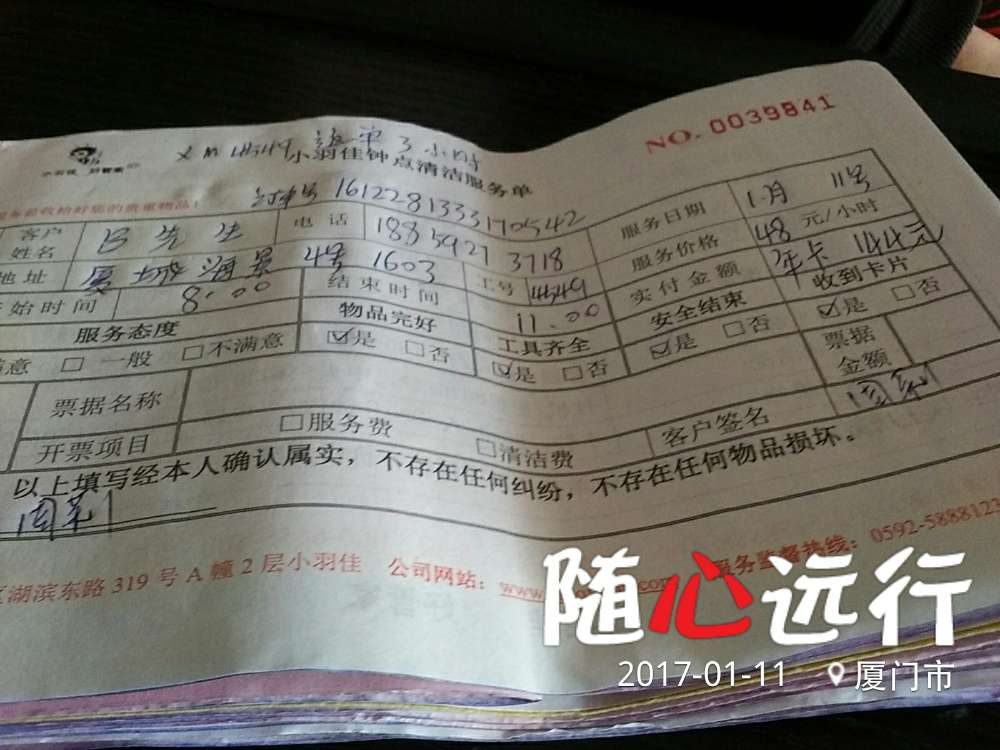 NO. 0039841
小羽佳 好管家
XM 4549 派单 3小时
小羽佳钟点清洁服务单
订单号 161228133317054 2
客户姓名 吕先生 电话 18859273718 服务日期 1月 11号
地址 厦城海景 4号 1603 工号 4549 服务价格 48元/小时
开始时间 8:00 结束时间 11:00 实付金额 年卡 144元
服务态度 物品完好 工具齐全 安全结束 收到卡片
满意 □ 一般 □ 不满意 ☑是 □否 ☑是 □否 ☑是 □否 ☑是 □否
票据名称 票据金额
开票项目 □服务费 □清洁费 客户签名
以上填写经本人确认属实,不存在任何纠纷,不存在任何物品损坏。
区湖滨东路 319 号 A 幢 2 层小羽佳 公司网站:www. com 服务监督热线:0592-5888122
随心远行
2017-01-11 厦门市